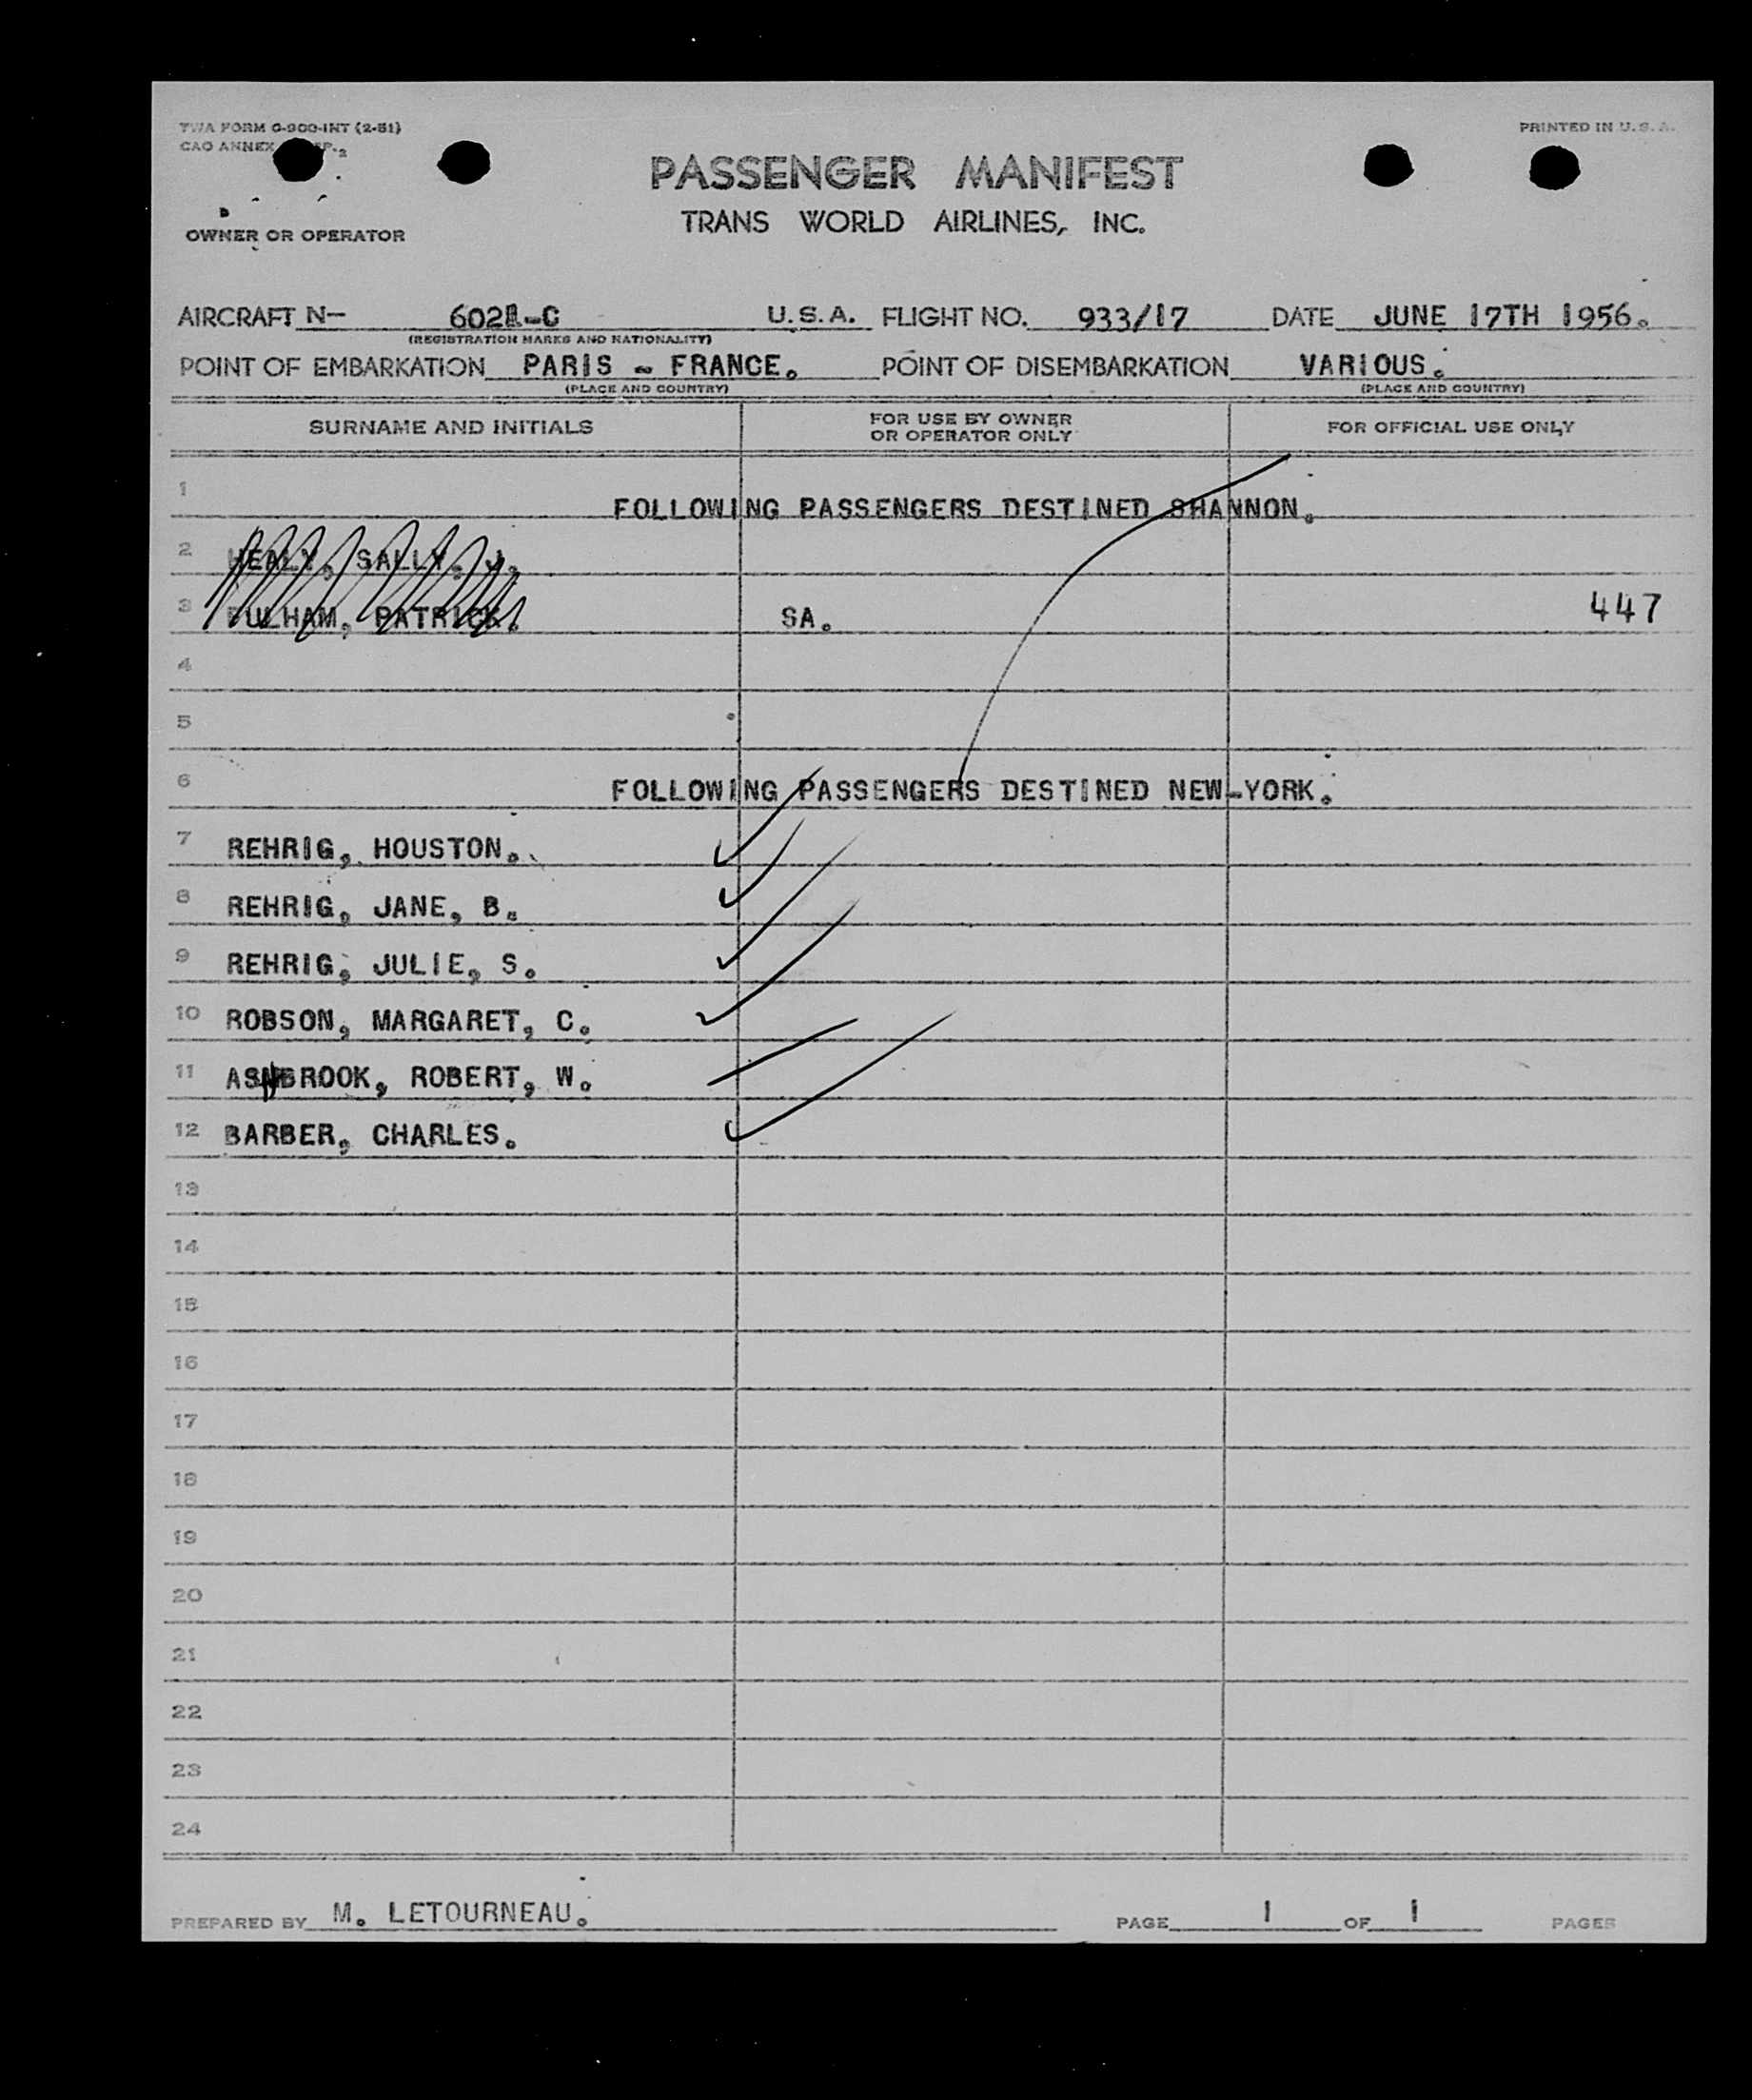 TWA FORM O-900-INT (2-51)
PRINTED IN U.S.A.
CAO ANNEX
PASSENGER MANIFEST
TRANS WORLD AIRLINES, INC.
OWNER OR OPERATOR
AIRCRAFT N- U.S.A. FLIGHT NO. 933/17 DATE JUNE 17TH 1956.
(REGISTRATION MARKS AND NATIONALITY)
POINT OF EMBARKATION PARIS - FRANCE. POINT OF DISEMBARKATION VARIOUS.
(PLACE AND COUNTRY) (PLACE AND COUNTRY)
SURNAME AND INITIALS FOR USE BY OWNER OR OPERATOR ONLY FOR OFFICIAL USE ONLY
1 FOLLOWING PASSENGERS DESTINED SHANNON.
2 HEALY, SALLY, J.
3 PATRICK. SA. 447
4
5
6 FOLLOWING PASSENGERS DESTINED NEW-YORK.
7 REHRIG, HOUSTON.
8 REHRIG, JANE, B.
9 REHRIG, JULIE, S.
10 ROBSON, MARGARET, C.
11 ASHBROOK, ROBERT, W.
12 BARBER, CHARLES.
13
14
15
16
17
18
19
20
21
22
23
24
PREPARED BY M. LETOURNEAU. PAGE 1 OF 1 PAGES